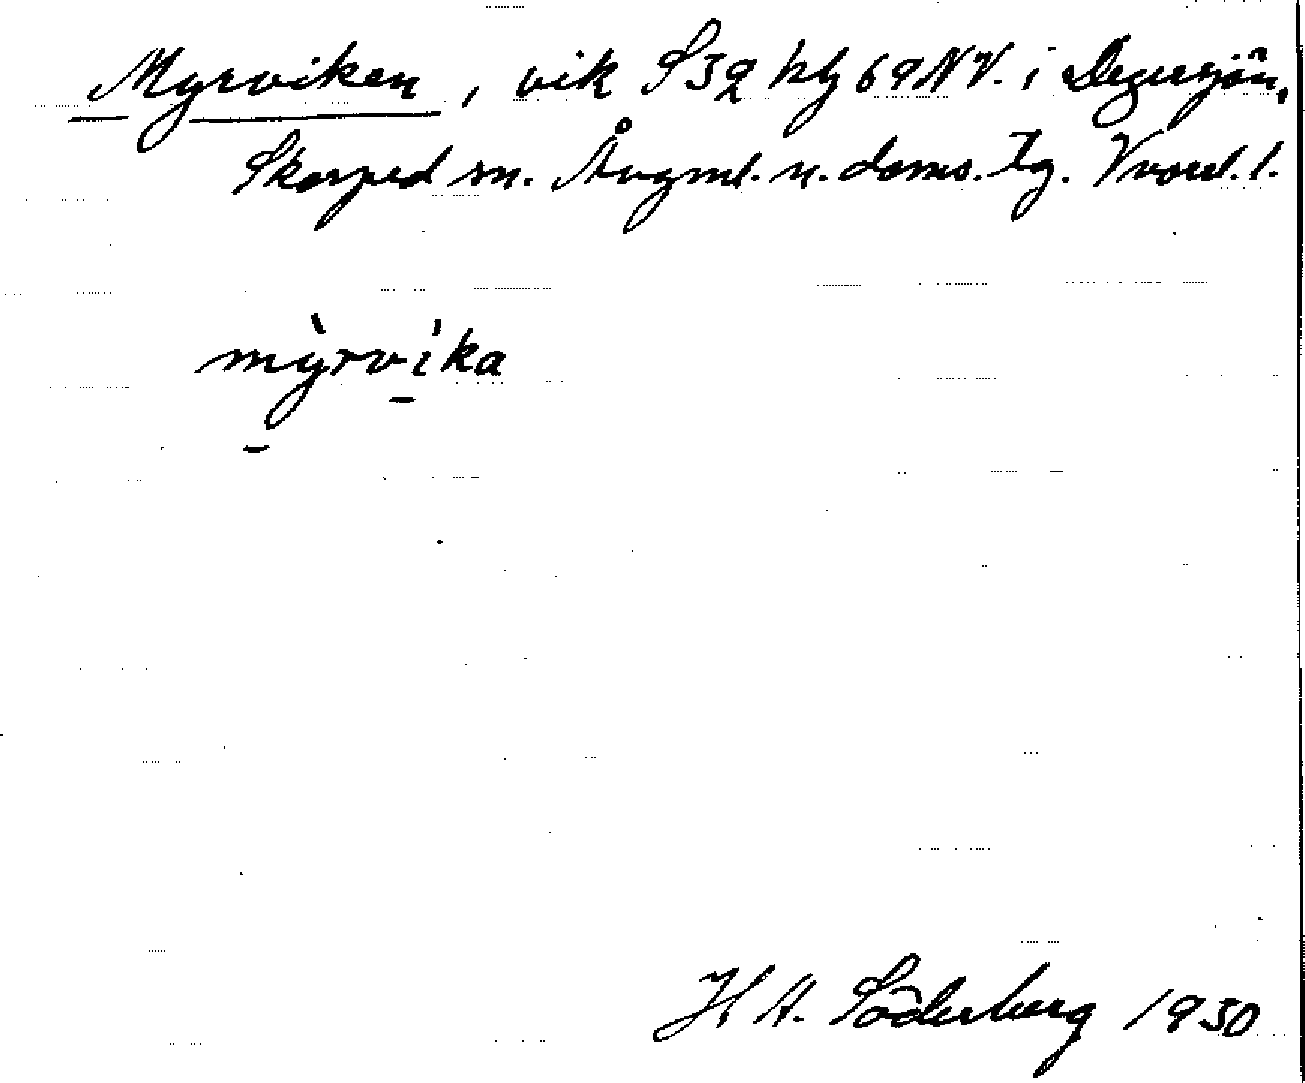 Myrviken, vik S32 blg 69 NV. i Degersjön,
Skorped sn. Ångml. n. doms. tg. Vnorrl. l.
mỳrvika
H A. Söderberg 1930